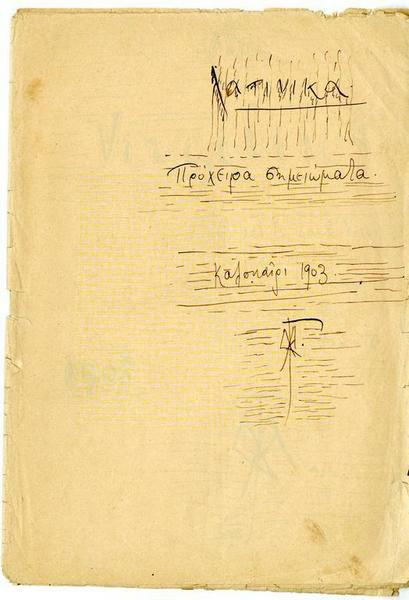 Λατινικα.
Πρόχειρα σημειώματα.
Καλοκαῖρι 1903